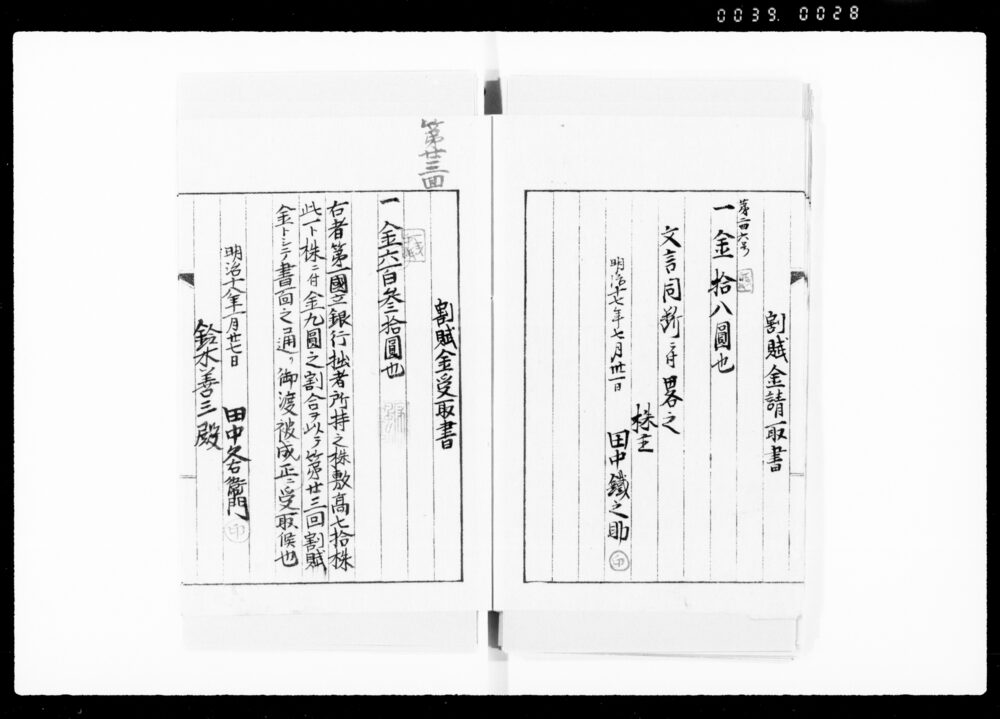 0039. 0028
割賦金請取書
第二百六号
一金拾八圓也
文言同断ニ付畧之
明治十七年七月卅一日
株主
田中鐵之助 印
第廿三回
割賦金受取書
一金六百叁拾圓也
右者第一國立銀行拙者所持之株敷高七拾株
此一ト株ニ付金九圓之割合ヲ以テ第廿三回割賦
金トシテ書面之通リ御渡被成正ニ受取候也
明治十八年一月廿七日
田中久右衛門 印
鈴木善三殿